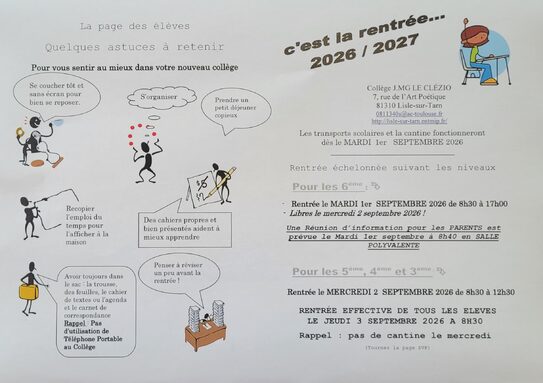 La page des élèves
Quelques astuces à retenir
Pour vous sentir au mieux dans votre nouveau collège
Se coucher tôt et
sans écran pour
bien se reposer.
S'organiser
Prendre un
petit déjeuner
copieux
Recopier
l'emploi du
temps pour
l'afficher à la
maison
Des cahiers propres et
bien présentés aident à
mieux apprendre
Avoir toujours dans
le sac : la trousse,
des feuilles, le cahier
de textes ou l'agenda
et le carnet de
correspondance
Rappel : Pas
d'utilisation de
Téléphone Portable
au Collège
Penser à réviser
un peu avant la
rentrée !
c'est la rentrée...
2026 / 2027
Collège J.MG LE CLÉZIO
7, rue de l'Art Poétique
81310 Lisle-sur-Tarn
0811340u@ac-toulouse.fr
http://lisle-sur-tarn.entmip.fr/
Les transports scolaires et la cantine fonctionneront
dès le MARDI 1er SEPTEMBRE 2026
Rentrée échelonnée suivant les niveaux
Pour les 6ème :
- Rentrée le MARDI 1er SEPTEMBRE 2026 de 8h30 à 17h00
- Libres le mercredi 2 septembre 2026 !
Une Réunion d'information pour les PARENTS est
prévue le Mardi 1er septembre à 8h40 en SALLE
POLYVALENTE
Pour les 5ème, 4ème et 3ème :
Rentrée le MERCREDI 2 SEPTEMBRE 2026 de 8h30 à 12h30
RENTRÉE EFFECTIVE DE TOUS LES ELEVES
LE JEUDI 3 SEPTEMBRE 2026 A 8H30
Rappel : pas de cantine le mercredi
(Tournez la page SVP)